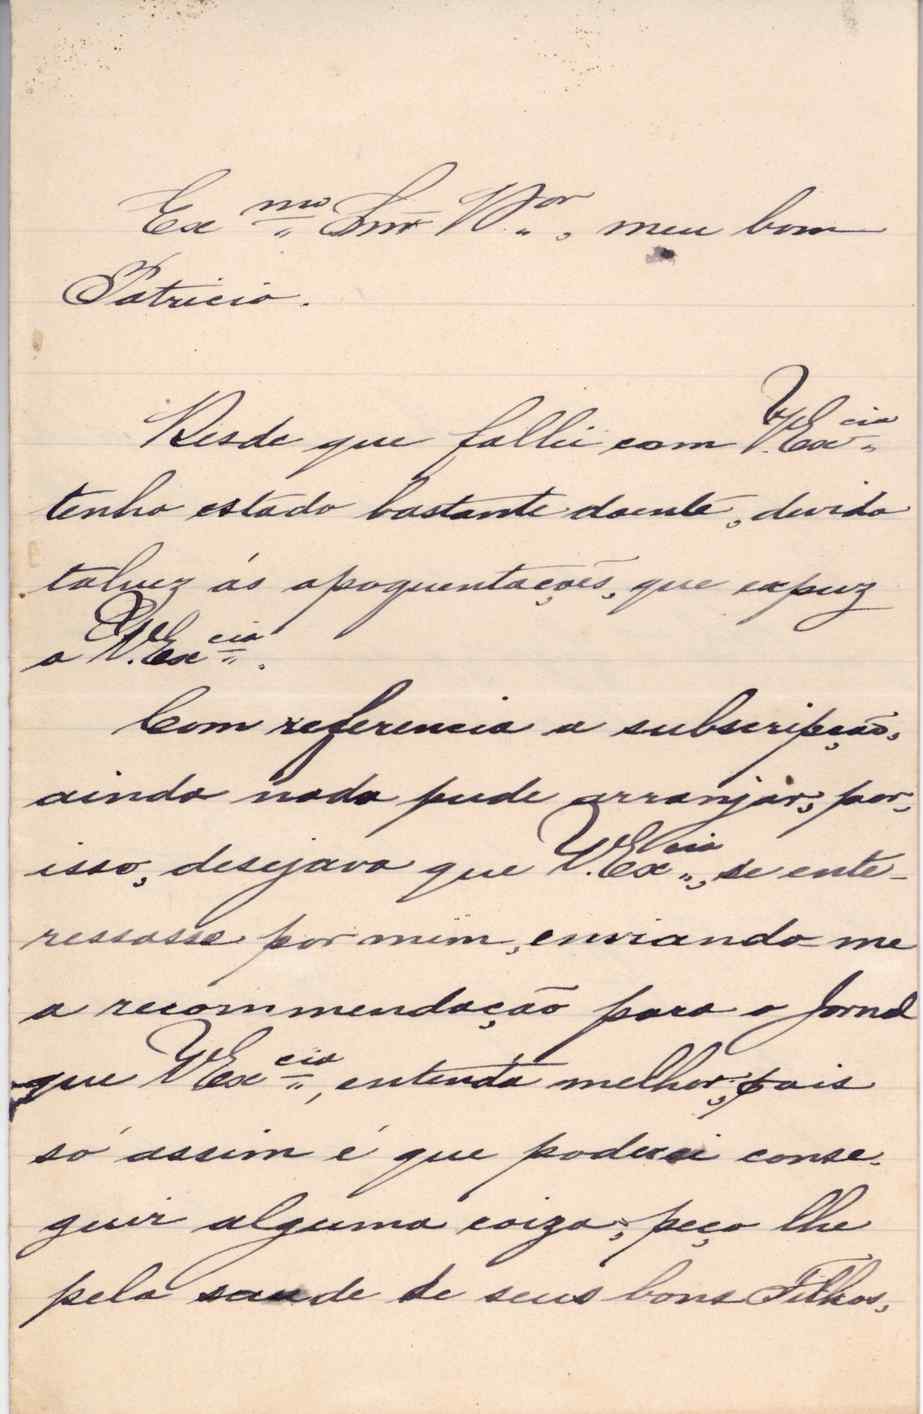 Ex mo Snr Dor, meu bom
Patricio.
Desde que fallei com V.Ex cia
tenho estado bastante doente, devido
talvez ás apoquentações, que expuz
a V.Ex cia.
Com referencia a subscripção,
ainda nada pude arranjar; por,
isso, desejava que V.Ex cia, se ente-
ressasse por mim, enviando me
a recommendação para o Jornal
que V Ex cia, entenda melhor; pois
só assim é que poderei conse-
guir alguma coiza; peço lhe
pela saude de seus bons Filhos,